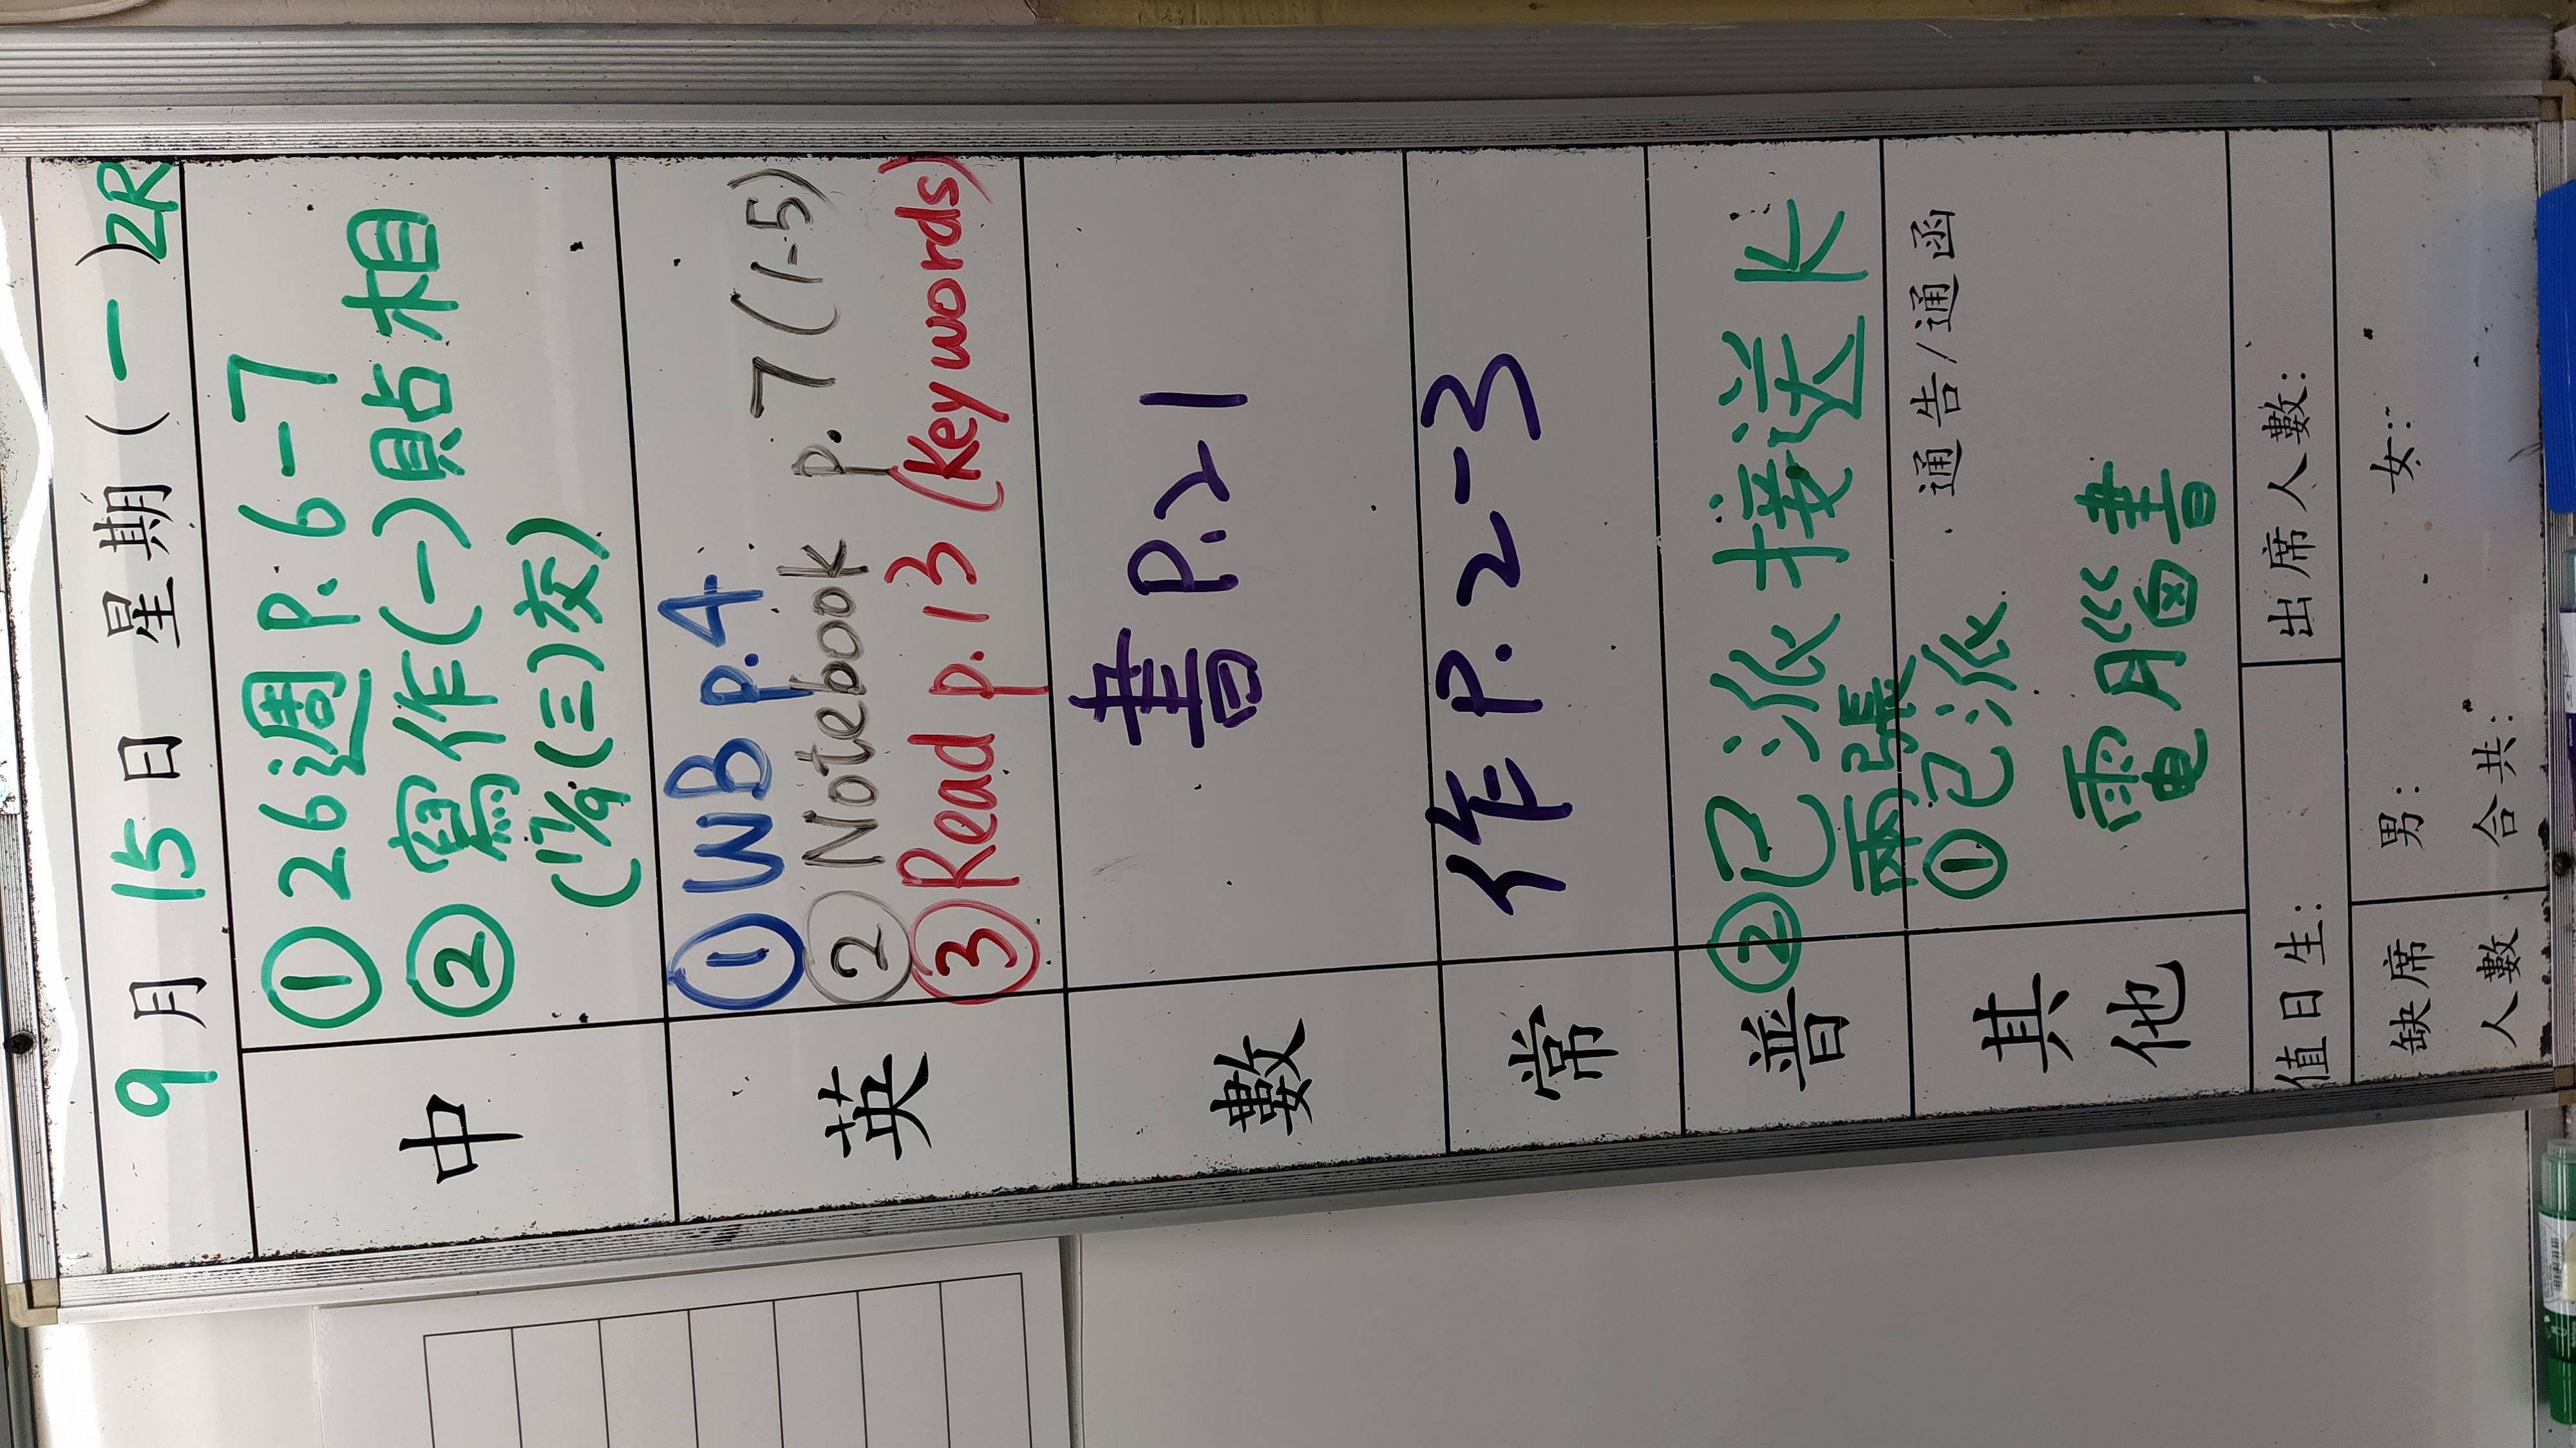 9月15日 星期(一)2R
中
①26週P.6-7
②寫作(一)貼相
(17/9(三)交)
英
①WB p.4
②Notebook p.7(1-5)
③Read p.13(Key words)
數
書P.21
常
作P.2-3
普
②已派接送K
兩張
其他
通告/通函
①已派
電腦書
值日生:
出席人數:
缺席人數
男:
女::
合共: